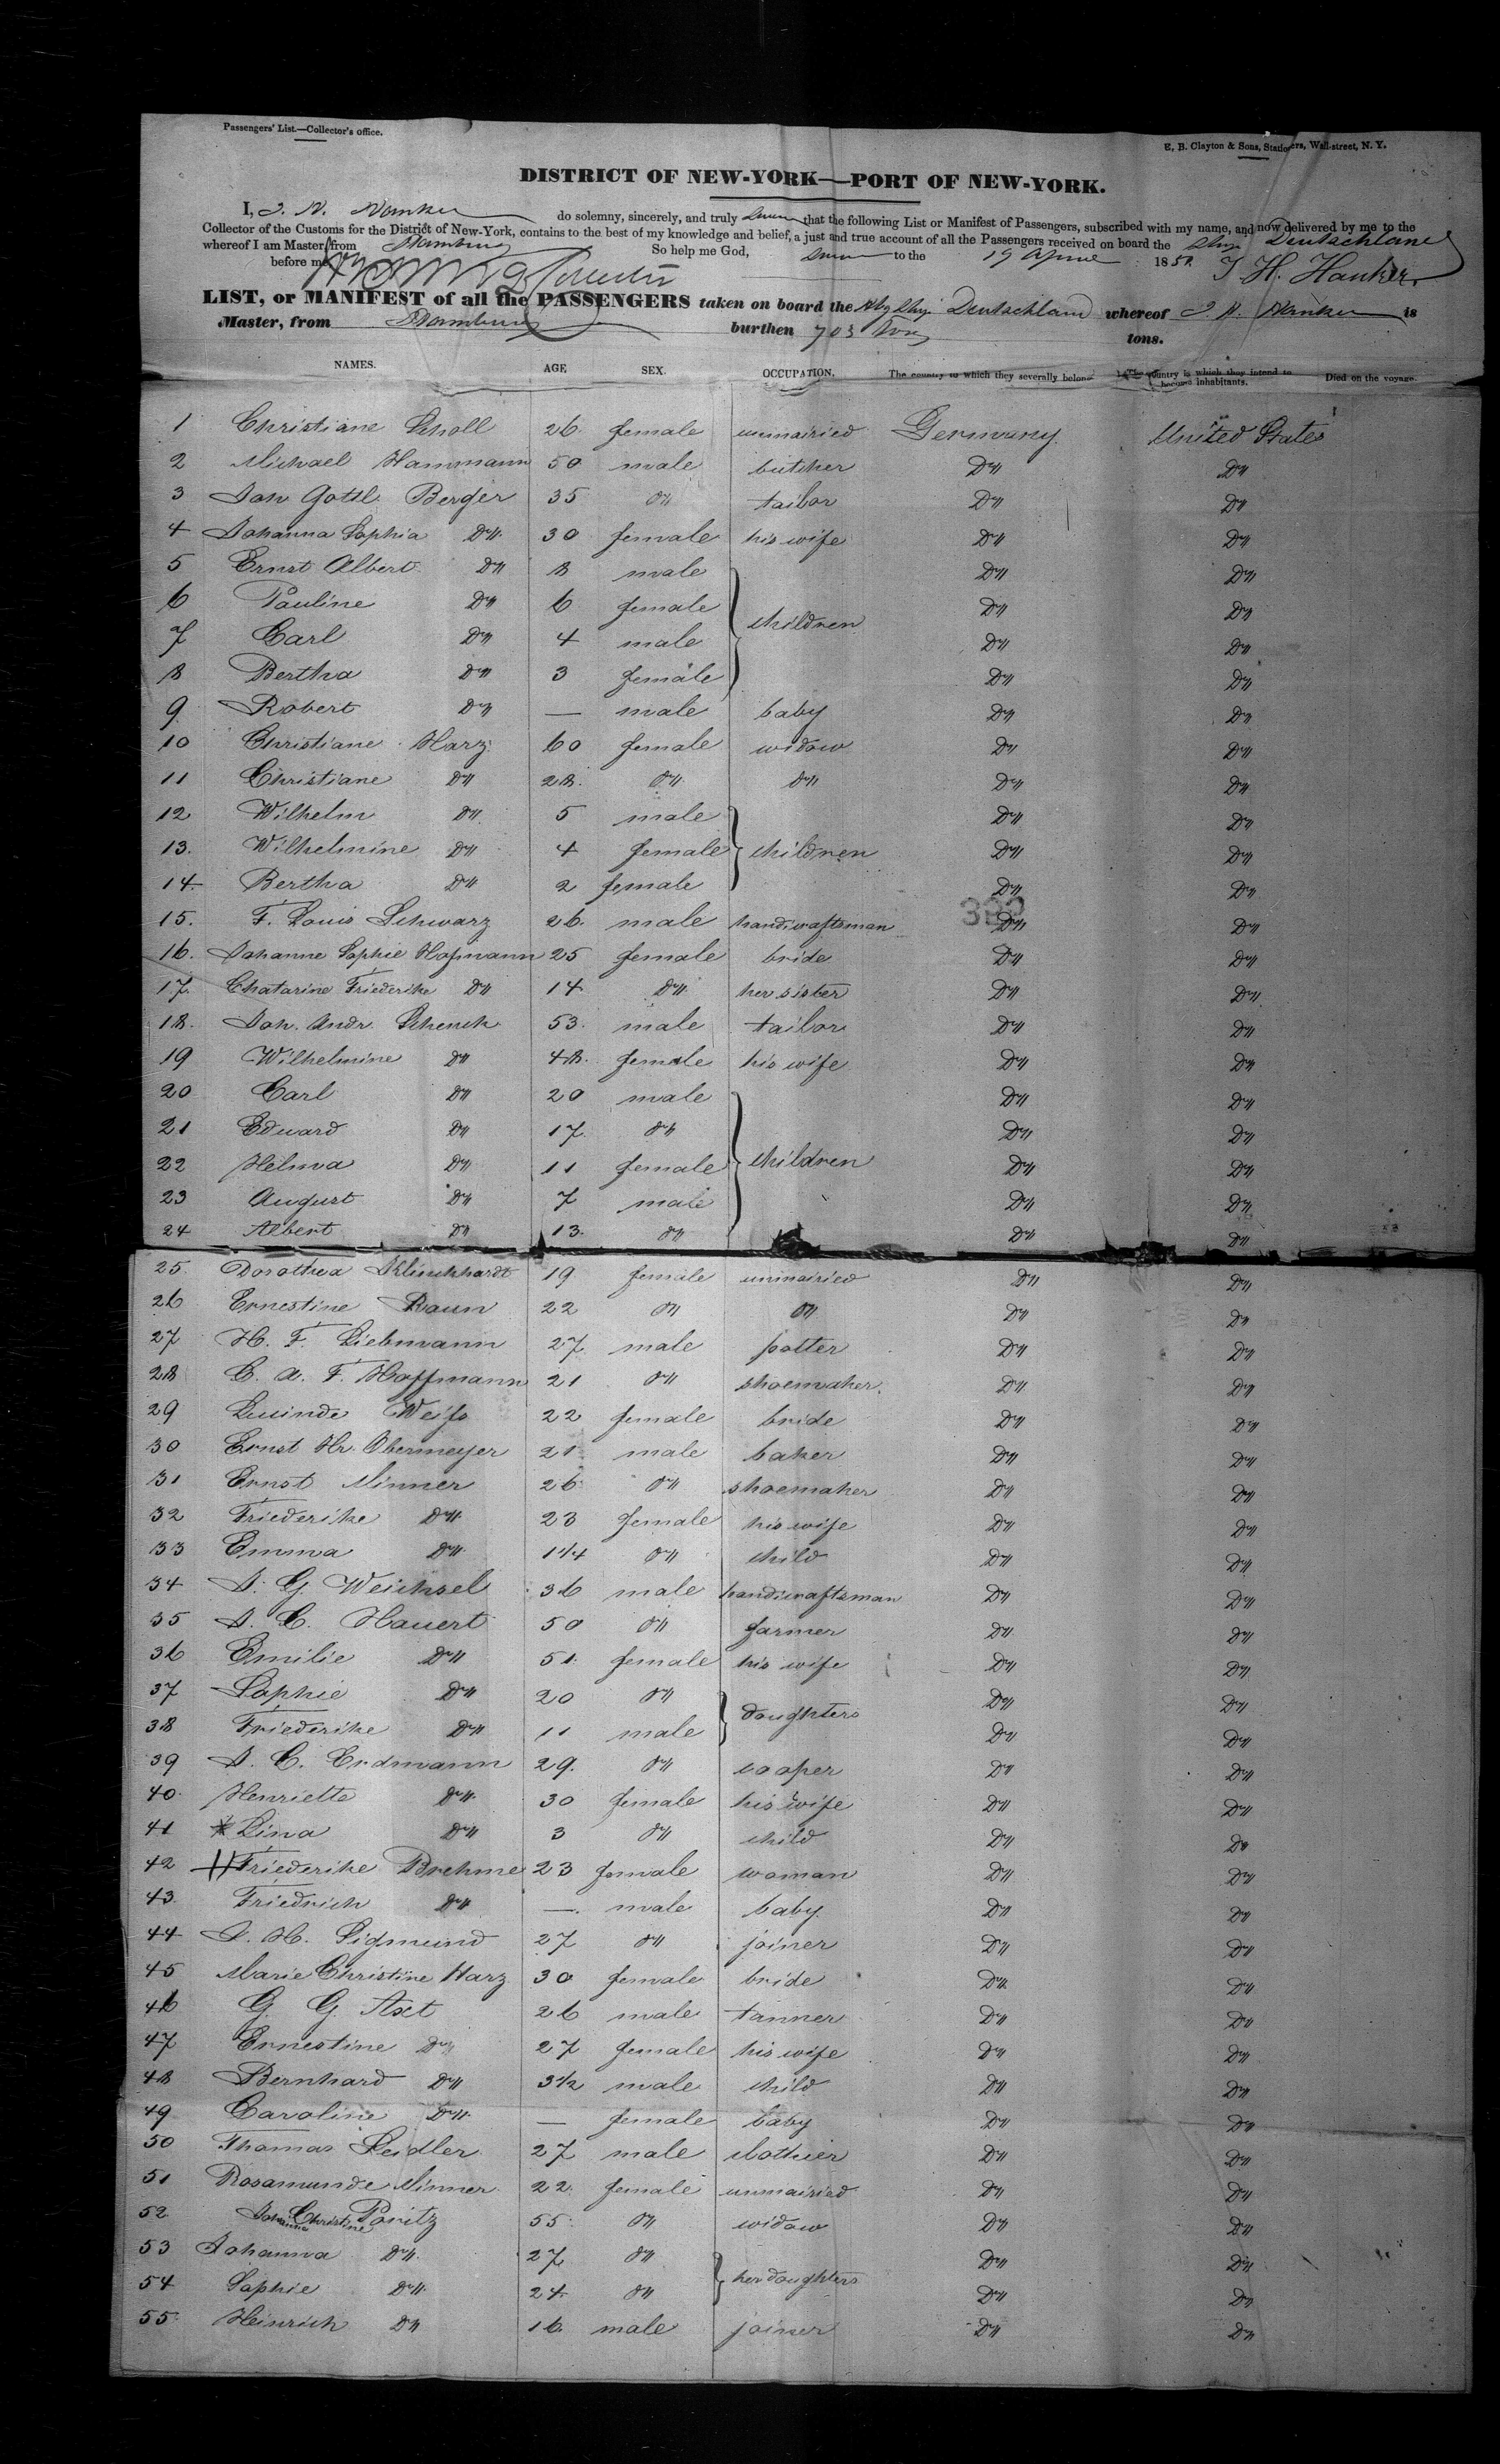 Passengers' List.—Collector's office.
E. B. Clayton & Sons, Stationers, Wall-street, N. Y.
DISTRICT OF NEW-YORK—PORT OF NEW-YORK.
I, J. H. Hanker do solemny, sincerely, and truly swear that the following List or Manifest of Passengers, subscribed with my name, and now delivered by me to the
Collector of the Customs for the District of New-York, contains to the best of my knowledge and belief, a just and true account of all the Passengers received on board the Ship Deutschland
whereof I am Master, from Hamburg So help me God,
before me to the 19 April 185 J. H. Hanker.
LIST, or MANIFEST of all the PASSENGERS taken on board the Hbg Ship Deutschland whereof J. H. Hanker is
Master, from Hamburg burthen 703 tons.
NAMES. AGE SEX. OCCUPATION. The country to which they severally belong The country in which they intend to become inhabitants. Died on the voyage.
1 Christiane Scholl 26 female unmairied Germany United States
2 Michael Hammann 50 male butcher Do Do
3 Joh Gottl. Berger 35 do tailor Do Do
4 Johanna Sophia Do 30 female his wife Do Do
5 Ernst Albert Do 8 male Do Do
6 Pauline Do 6 female children Do Do
7 Carl Do 4 male Do Do
8 Bertha Do 3 female Do Do
9 Robert Do — male baby Do Do
10 Christiane Harz 60 female widow Do Do
11 Christiane Do 28. do do Do Do
12 Wilhelm Do 5 male Do Do
13. Wilhelmine Do 4 female children Do Do
14 Bertha Do 2 female Do Do
15. F. Louis Schwarz 26. male handicraftsman Do Do
16. Johanne Sophie Hofmann 25 female bride Do Do
17. Chatarine Friederike Do 14 Do her sister Do Do
18. Joh. Andr. Schenck 53. male tailor Do Do
19 Wilhelmine Do 48. female his wife Do Do
20 Carl Do 20 male Do Do
21 Edward Do 17. do Do Do
22 Helma Do 11 female children Do Do
23 August Do 7 male Do Do
24 Albert Do 13. do Do Do
25. Dorothea Klinckhardt 19 female unmairied Do Do
26 Ernestine Raun 22 do do Do Do
27 H. F. Liebmann 27. male potter Do Do
28 C. A. F. Hoffmann 21 do shoemaker. Do Do
29 Luinde Weiss 22 female bride Do Do
30 Ernst Hr. Obermeyer 21 male baker Do Do
31 Ernst Minner 26 do shoemaker Do Do
32 Friederike Do 23 female his wife Do Do
33 Emma Do 1 1/4 do child Do Do
34 J. G. Weichsel 36 male handicraftsman Do Do
35 J. C. Hauert 50 do farmer Do Do
36 Emilie Do 51. female his wife Do Do
37 Sophie Do 20 do daughters Do Do
38 Friederike Do 11 male Do Do
39 J. C. Erdmann 29. do cooper Do Do
40. Henriette Do 30 female his wife Do Do
41 Lina Do 3 do child Do Do
42 Friederike Brehme 23 female woman Do Do
43. Friedrich Do —. male baby. Do Do
44 J. H. Sigmund 27 do joiner Do Do
45 Marie Christine Harz 30 female bride Do Do
46 G. G. Axt 26 male tanner Do Do
47 Ernestine Do 27 female his wife Do Do
48 Bernhard Do 3 1/2 male child Do Do
49 Caroline Do — female baby Do Do
50 Thomas Seidler 27 male clothier Do Do
51 Rosamunde Minner 22. female unmairied Do Do
52 Johanna Christine Poritz 55. do widow Do Do
53 Johanna Do 27 do her daughters Do Do
54 Sophie Do 24. do Do Do
55. Heinrich Do 16. male joiner Do Do